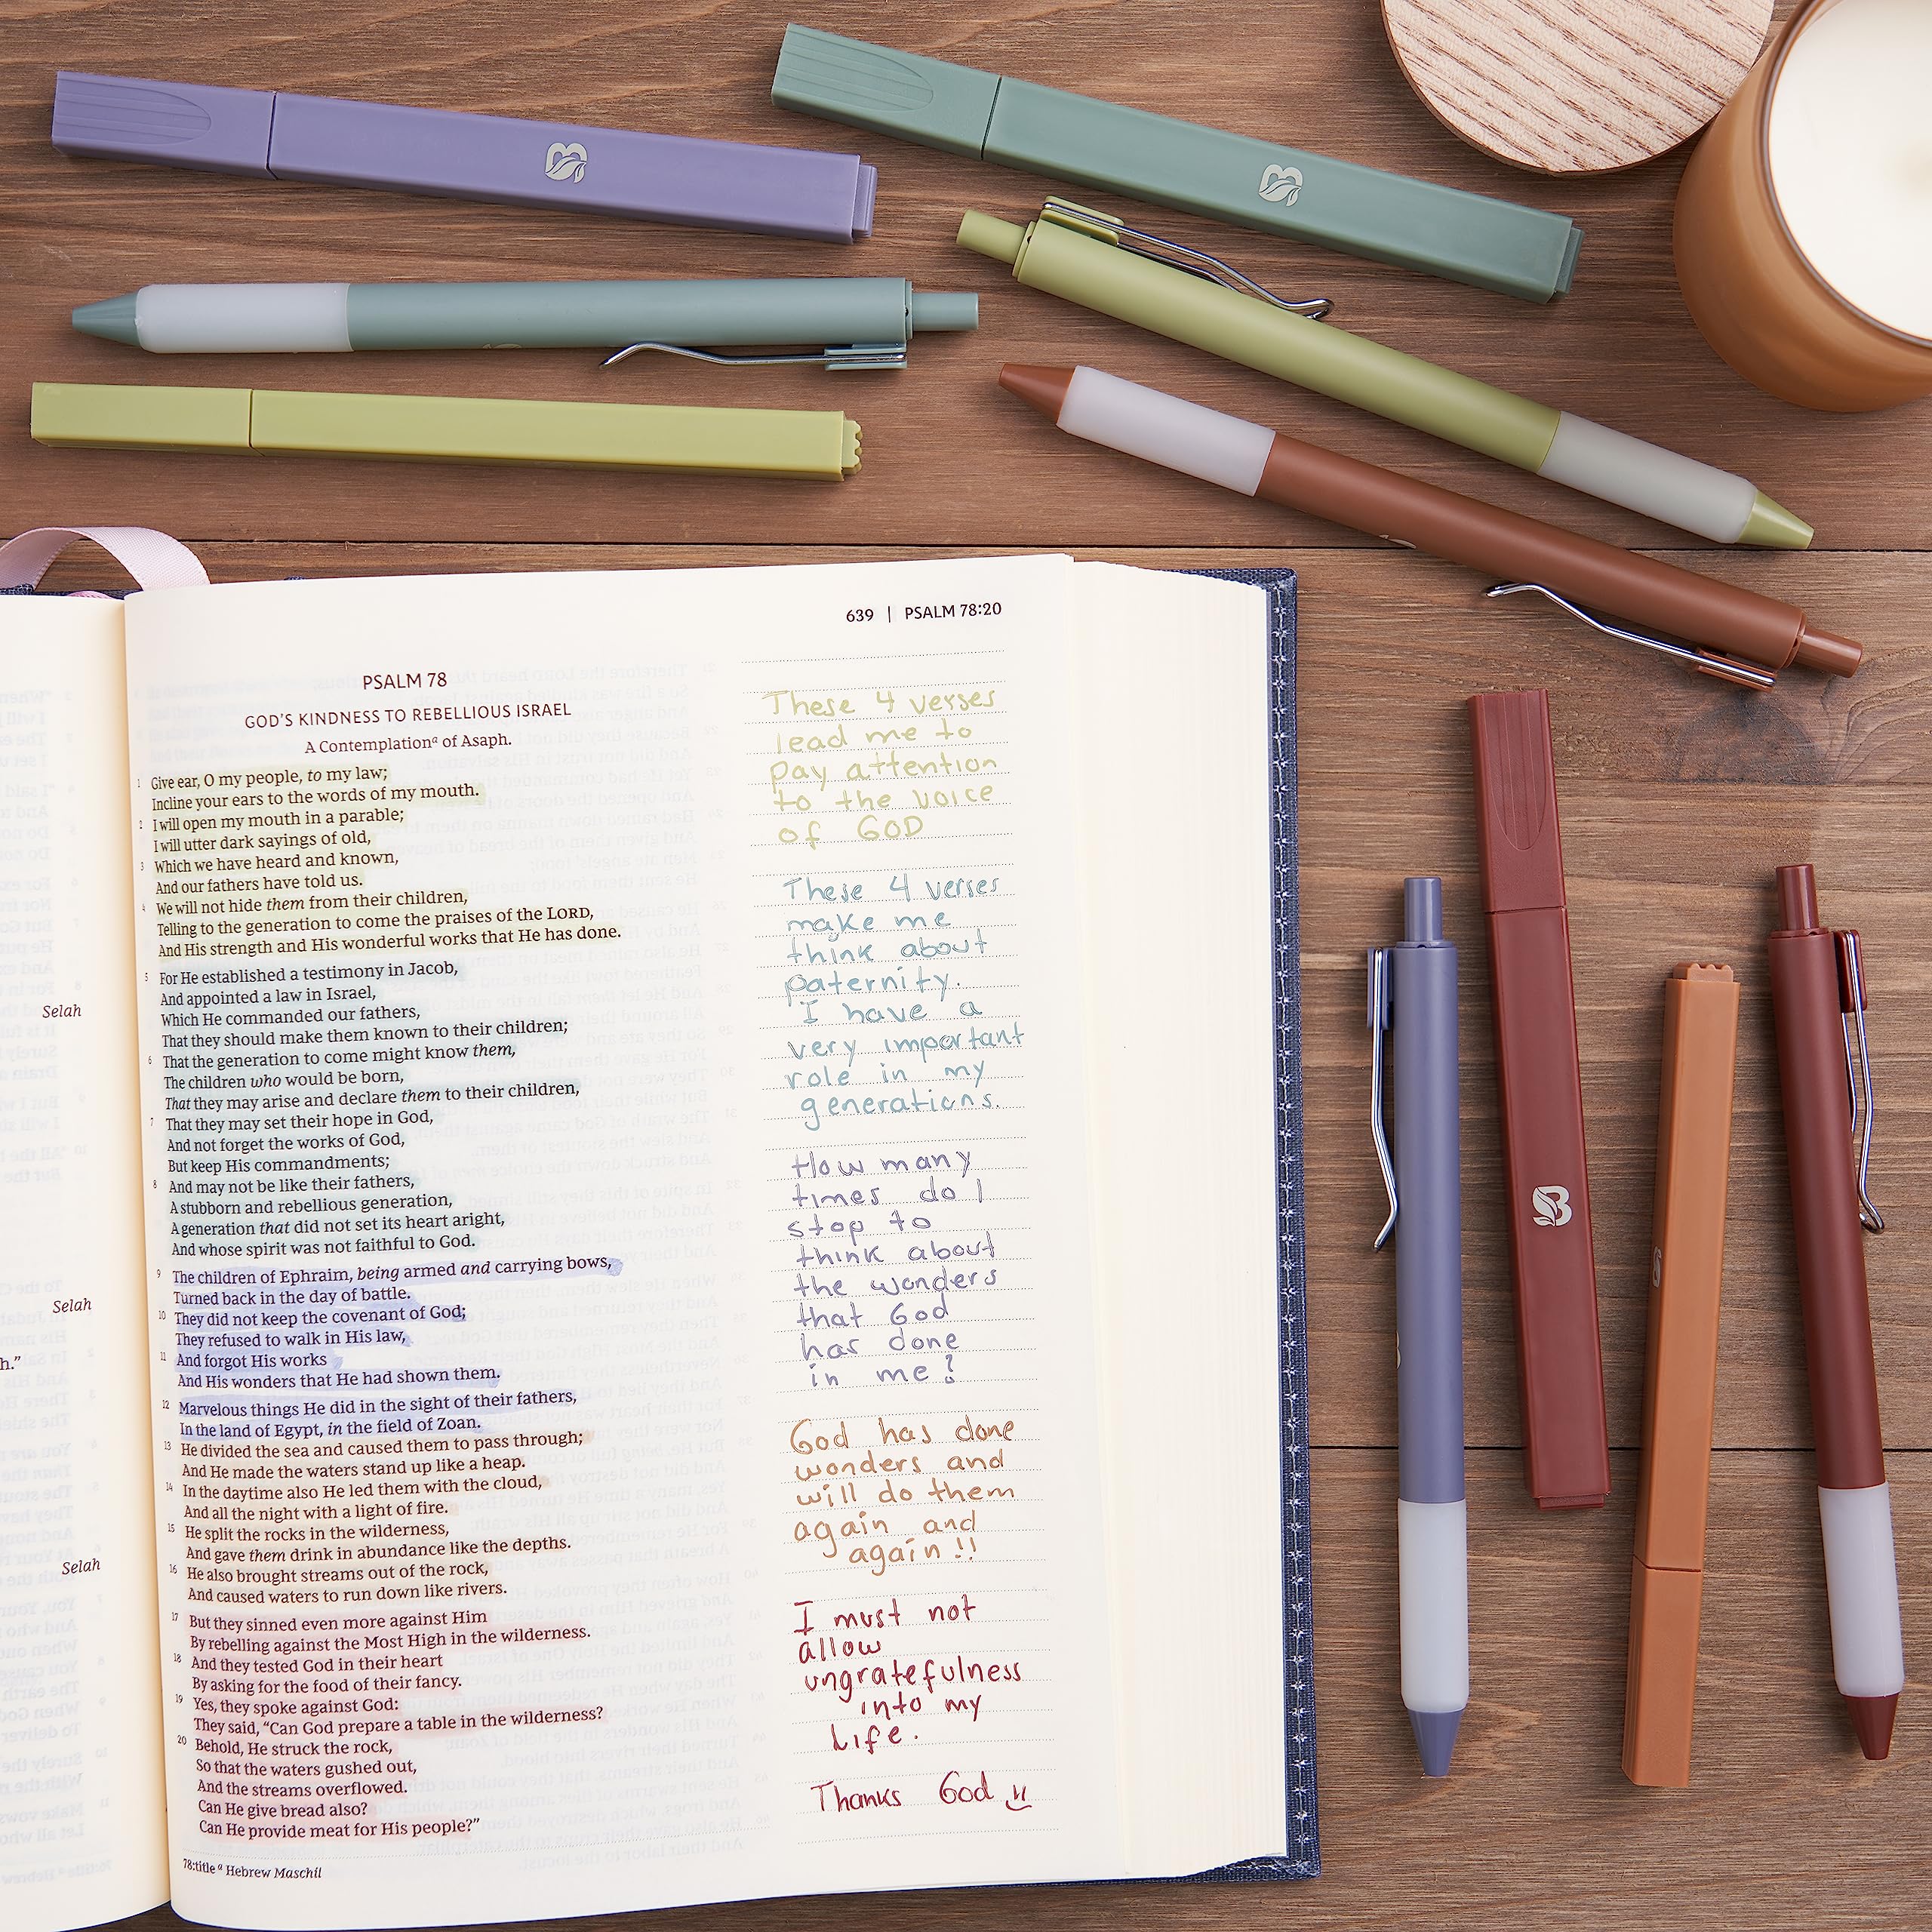 639 | PSALM 78:20
PSALM 78
GOD'S KINDNESS TO REBELLIOUS ISRAEL
A Contemplationᵃ of Asaph.
1 Give ear, O my people, to my law;
Incline your ears to the words of my mouth.
2 I will open my mouth in a parable;
I will utter dark sayings of old,
3 Which we have heard and known,
And our fathers have told us.
4 We will not hide them from their children,
Telling to the generation to come the praises of the LORD,
And His strength and His wonderful works that He has done.
5 For He established a testimony in Jacob,
And appointed a law in Israel,
Which He commanded our fathers,
That they should make them known to their children;
6 That the generation to come might know them,
The children who would be born,
That they may arise and declare them to their children,
7 That they may set their hope in God,
And not forget the works of God,
But keep His commandments;
8 And may not be like their fathers,
A stubborn and rebellious generation,
A generation that did not set its heart aright,
And whose spirit was not faithful to God.
9 The children of Ephraim, being armed and carrying bows,
Turned back in the day of battle.
10 They did not keep the covenant of God;
They refused to walk in His law,
11 And forgot His works
And His wonders that He had shown them.
12 Marvelous things He did in the sight of their fathers,
In the land of Egypt, in the field of Zoan.
13 He divided the sea and caused them to pass through;
And He made the waters stand up like a heap.
14 In the daytime also He led them with the cloud,
And all the night with a light of fire.
15 He split the rocks in the wilderness,
And gave them drink in abundance like the depths.
16 He also brought streams out of the rock,
And caused waters to run down like rivers.
17 But they sinned even more against Him
By rebelling against the Most High in the wilderness.
18 And they tested God in their heart
By asking for the food of their fancy.
19 Yes, they spoke against God:
They said, "Can God prepare a table in the wilderness?
20 Behold, He struck the rock,
So that the waters gushed out,
And the streams overflowed.
Can He give bread also?
Can He provide meat for His people?"
78:title ᵃ Hebrew Maschil
These 4 verses
lead me to
pay attention
to the voice
of GOD
These 4 verses
make me
think about
paternity.
I have a
very important
role in my
generations.
How many
times do I
stop to
think about
the wonders
that God
has done
in me?
God has done
wonders and
will do them
again and
again!!
I must not
allow
ungratefulness
into my
Life.
Thanks God
Selah
Selah
h."
Selah
B
B
B